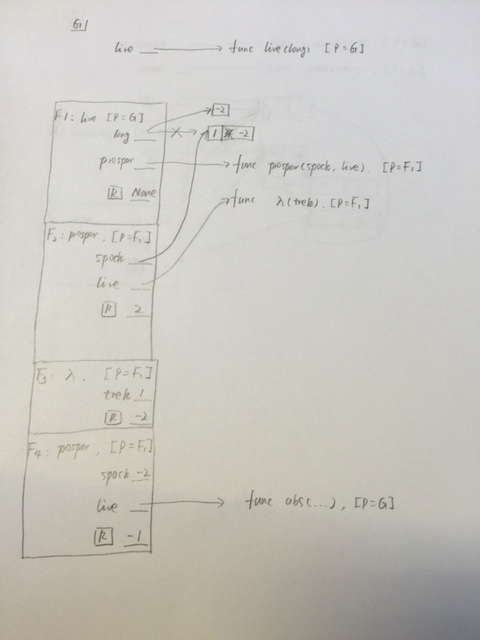 G1
live __ func live(long) [P=G]
F1: live [P=G]
-2
long __ × 1 -2
prosper __ func prosper(spock, live). [P=F1]
R None
func λ(trek). [P=F1]
F2: prosper. [P=F1]
spock __
live __
R 2
F3: λ, [P=F1]
trek 1
R -2
F4: posper, [P=F1]
spock -2
live __ func abs(...), [P=G]
R -1